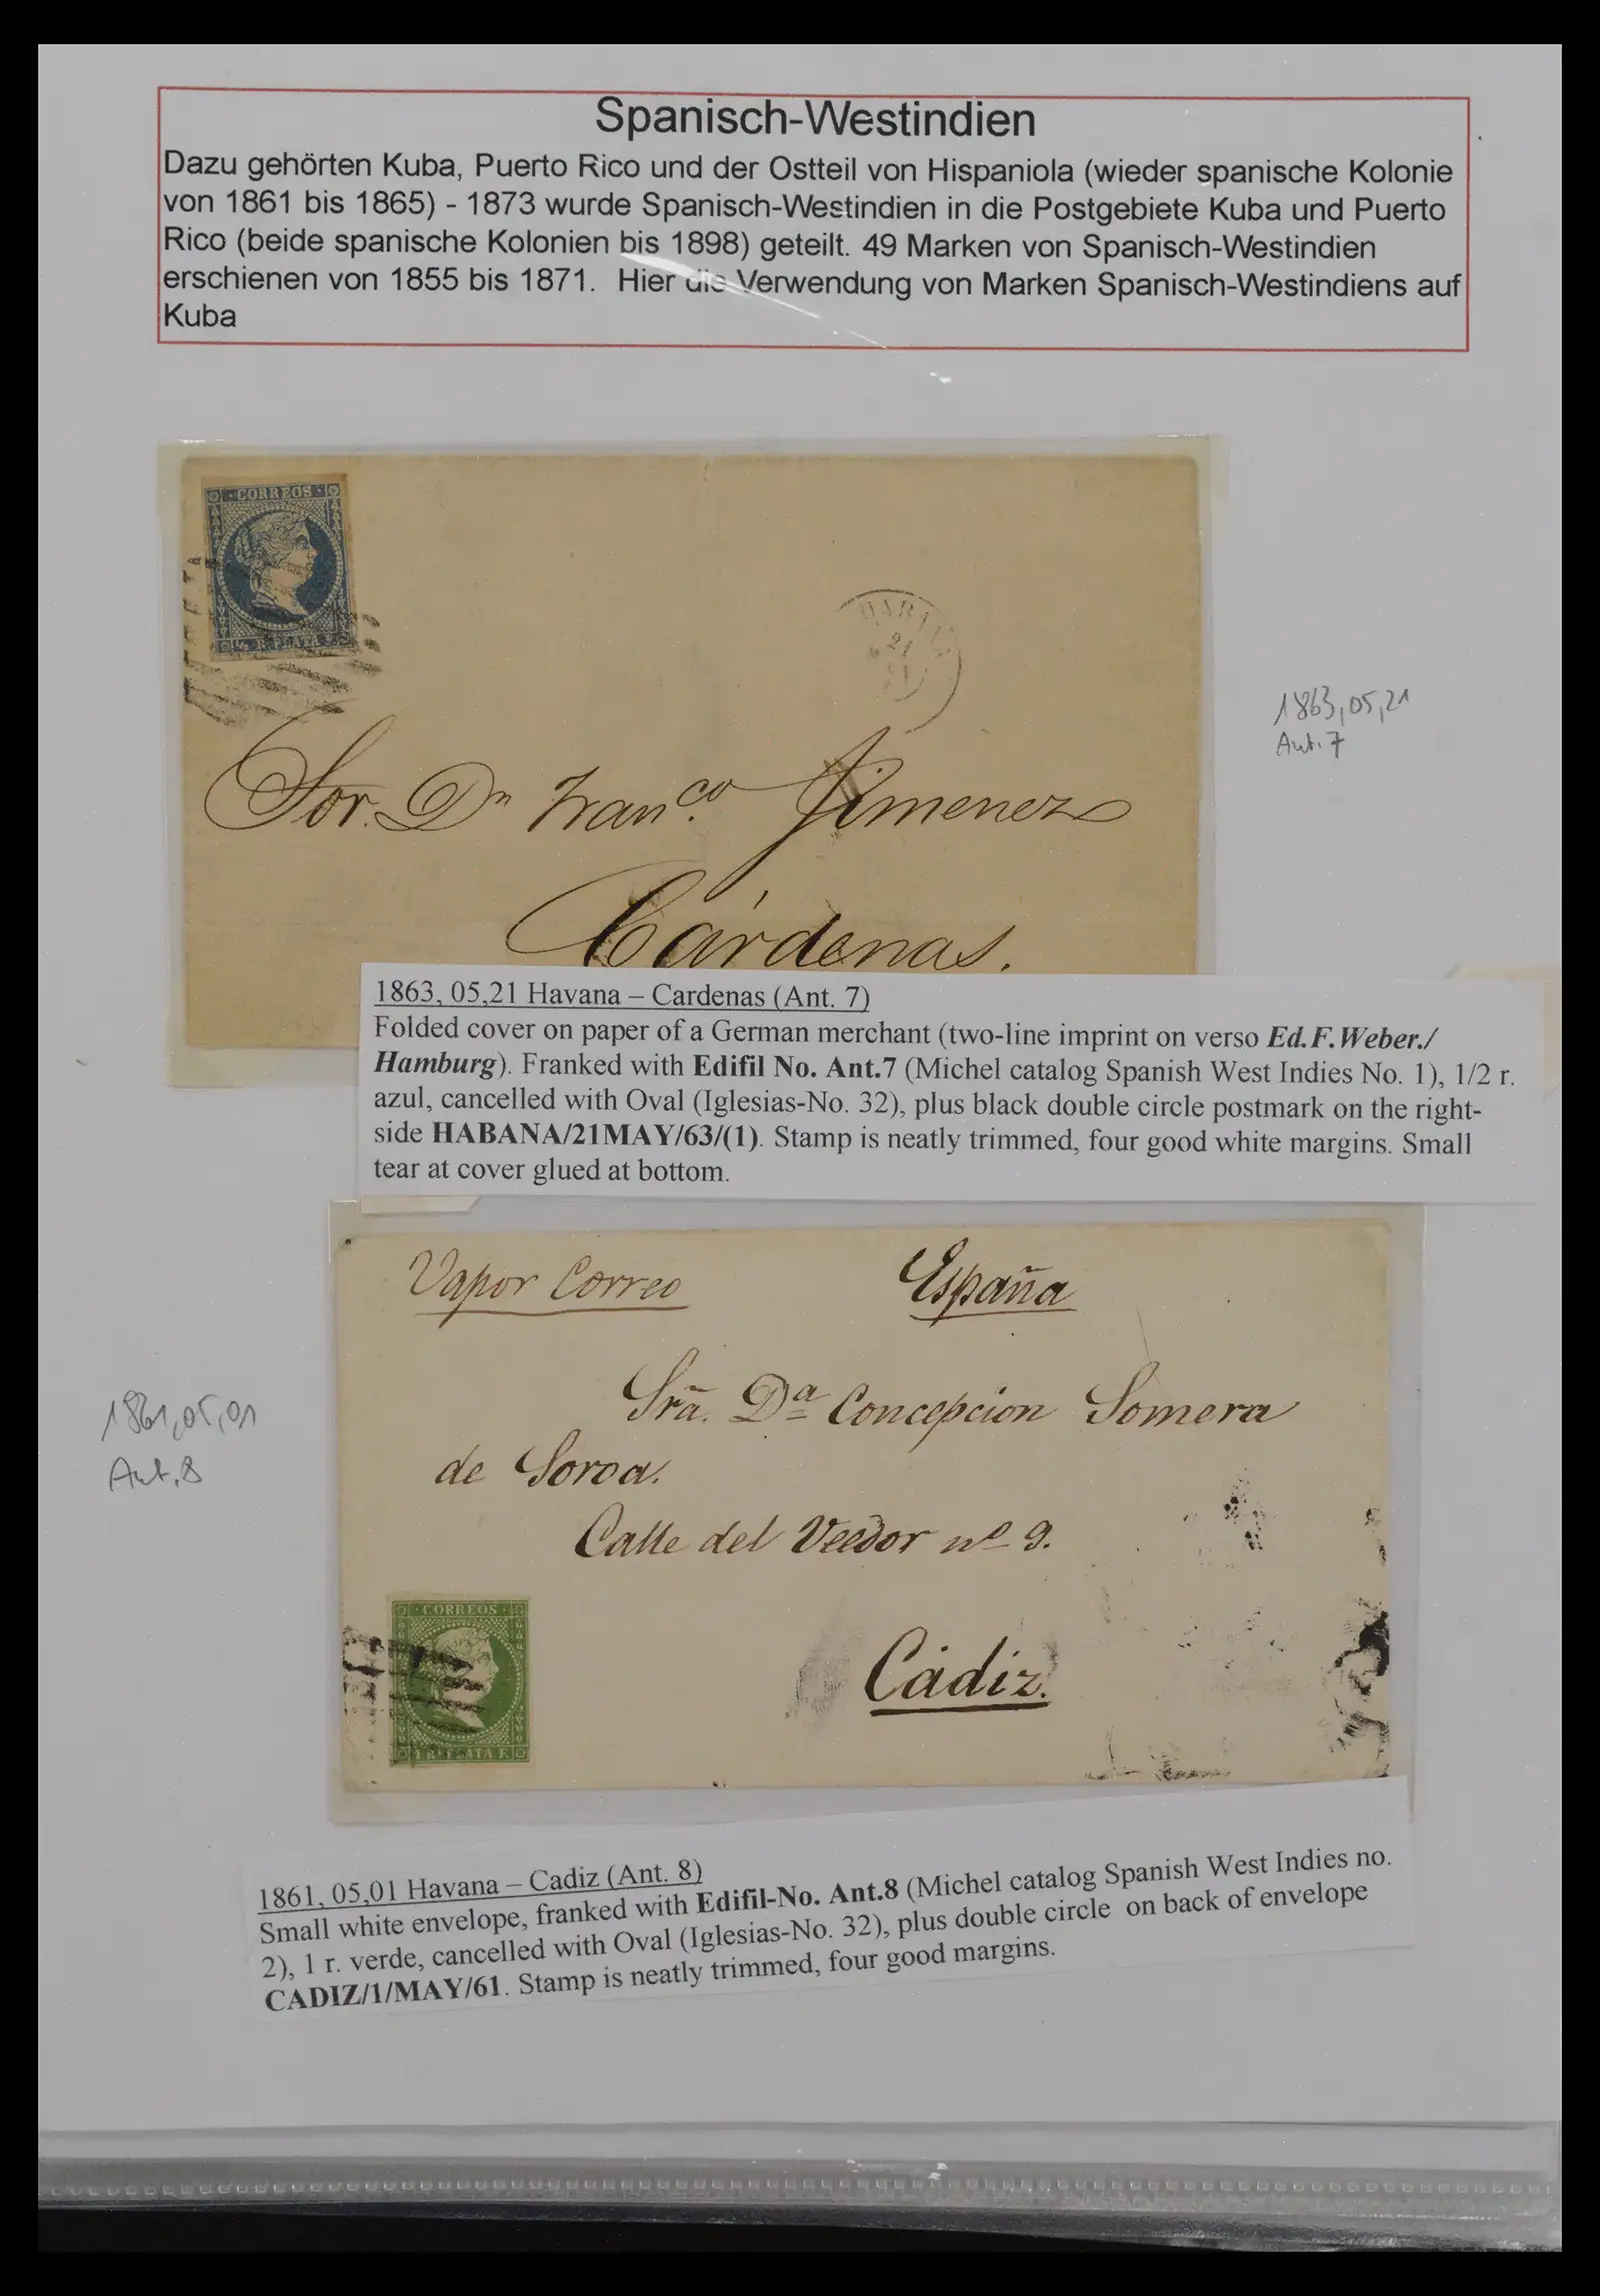 Spanisch-Westindien
Dazu gehörten Kuba, Puerto Rico und der Ostteil von Hispaniola (wieder spanische Kolonie
von 1861 bis 1865) - 1873 wurde Spanisch-Westindien in die Postgebiete Kuba und Puerto
Rico (beide spanische Kolonien bis 1898) geteilt. 49 Marken von Spanisch-Westindien
erschienen von 1855 bis 1871. Hier die Verwendung von Marken Spanisch-Westindiens auf
Kuba
CORREOS
½ R. PLATA F.
HABANA
21
1863,05,21
Ant. 7
Sor. Dn Franco. Jimenez
Cárdenas.
1863, 05,21 Havana – Cardenas (Ant. 7)
Folded cover on paper of a German merchant (two-line imprint on verso Ed.F.Weber./
Hamburg). Franked with Edifil No. Ant.7 (Michel catalog Spanish West Indies No. 1), 1/2 r.
azul, cancelled with Oval (Iglesias-No. 32), plus black double circle postmark on the right-
side HABANA/21MAY/63/(1). Stamp is neatly trimmed, four good white margins. Small
tear at cover glued at bottom.
Vapor Correo
España
Sra. Da Concepcion Somera
de Soroa.
Calle del Veedor no 9.
Cádiz.
1861,05,01
Ant. 8
CORREOS
1 R. PLATA F.
1861, 05,01 Havana – Cadiz (Ant. 8)
Small white envelope, franked with Edifil-No. Ant.8 (Michel catalog Spanish West Indies no.
2), 1 r. verde, cancelled with Oval (Iglesias-No. 32), plus double circle on back of envelope
CADIZ/1/MAY/61. Stamp is neatly trimmed, four good margins.